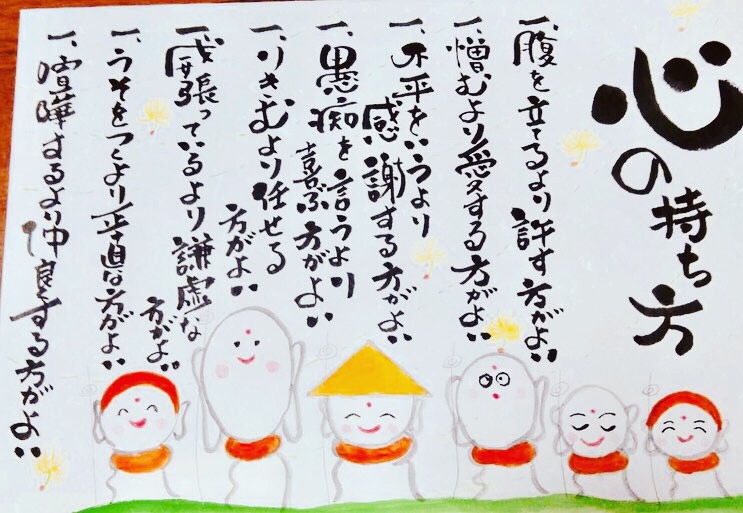 心の持ち方
一、腹を立てるより許す方がよい
一、憎むより愛する方がよい
一、不平をいうより
感謝する方がよい
一、愚痴を言うより
喜ぶ方がよい
一、りきむより任せる
方がよい
一、威張っているより謙虚な
方がよい
一、うそをつくより正直な方がよい
一、喧嘩するより仲良くする方がよい